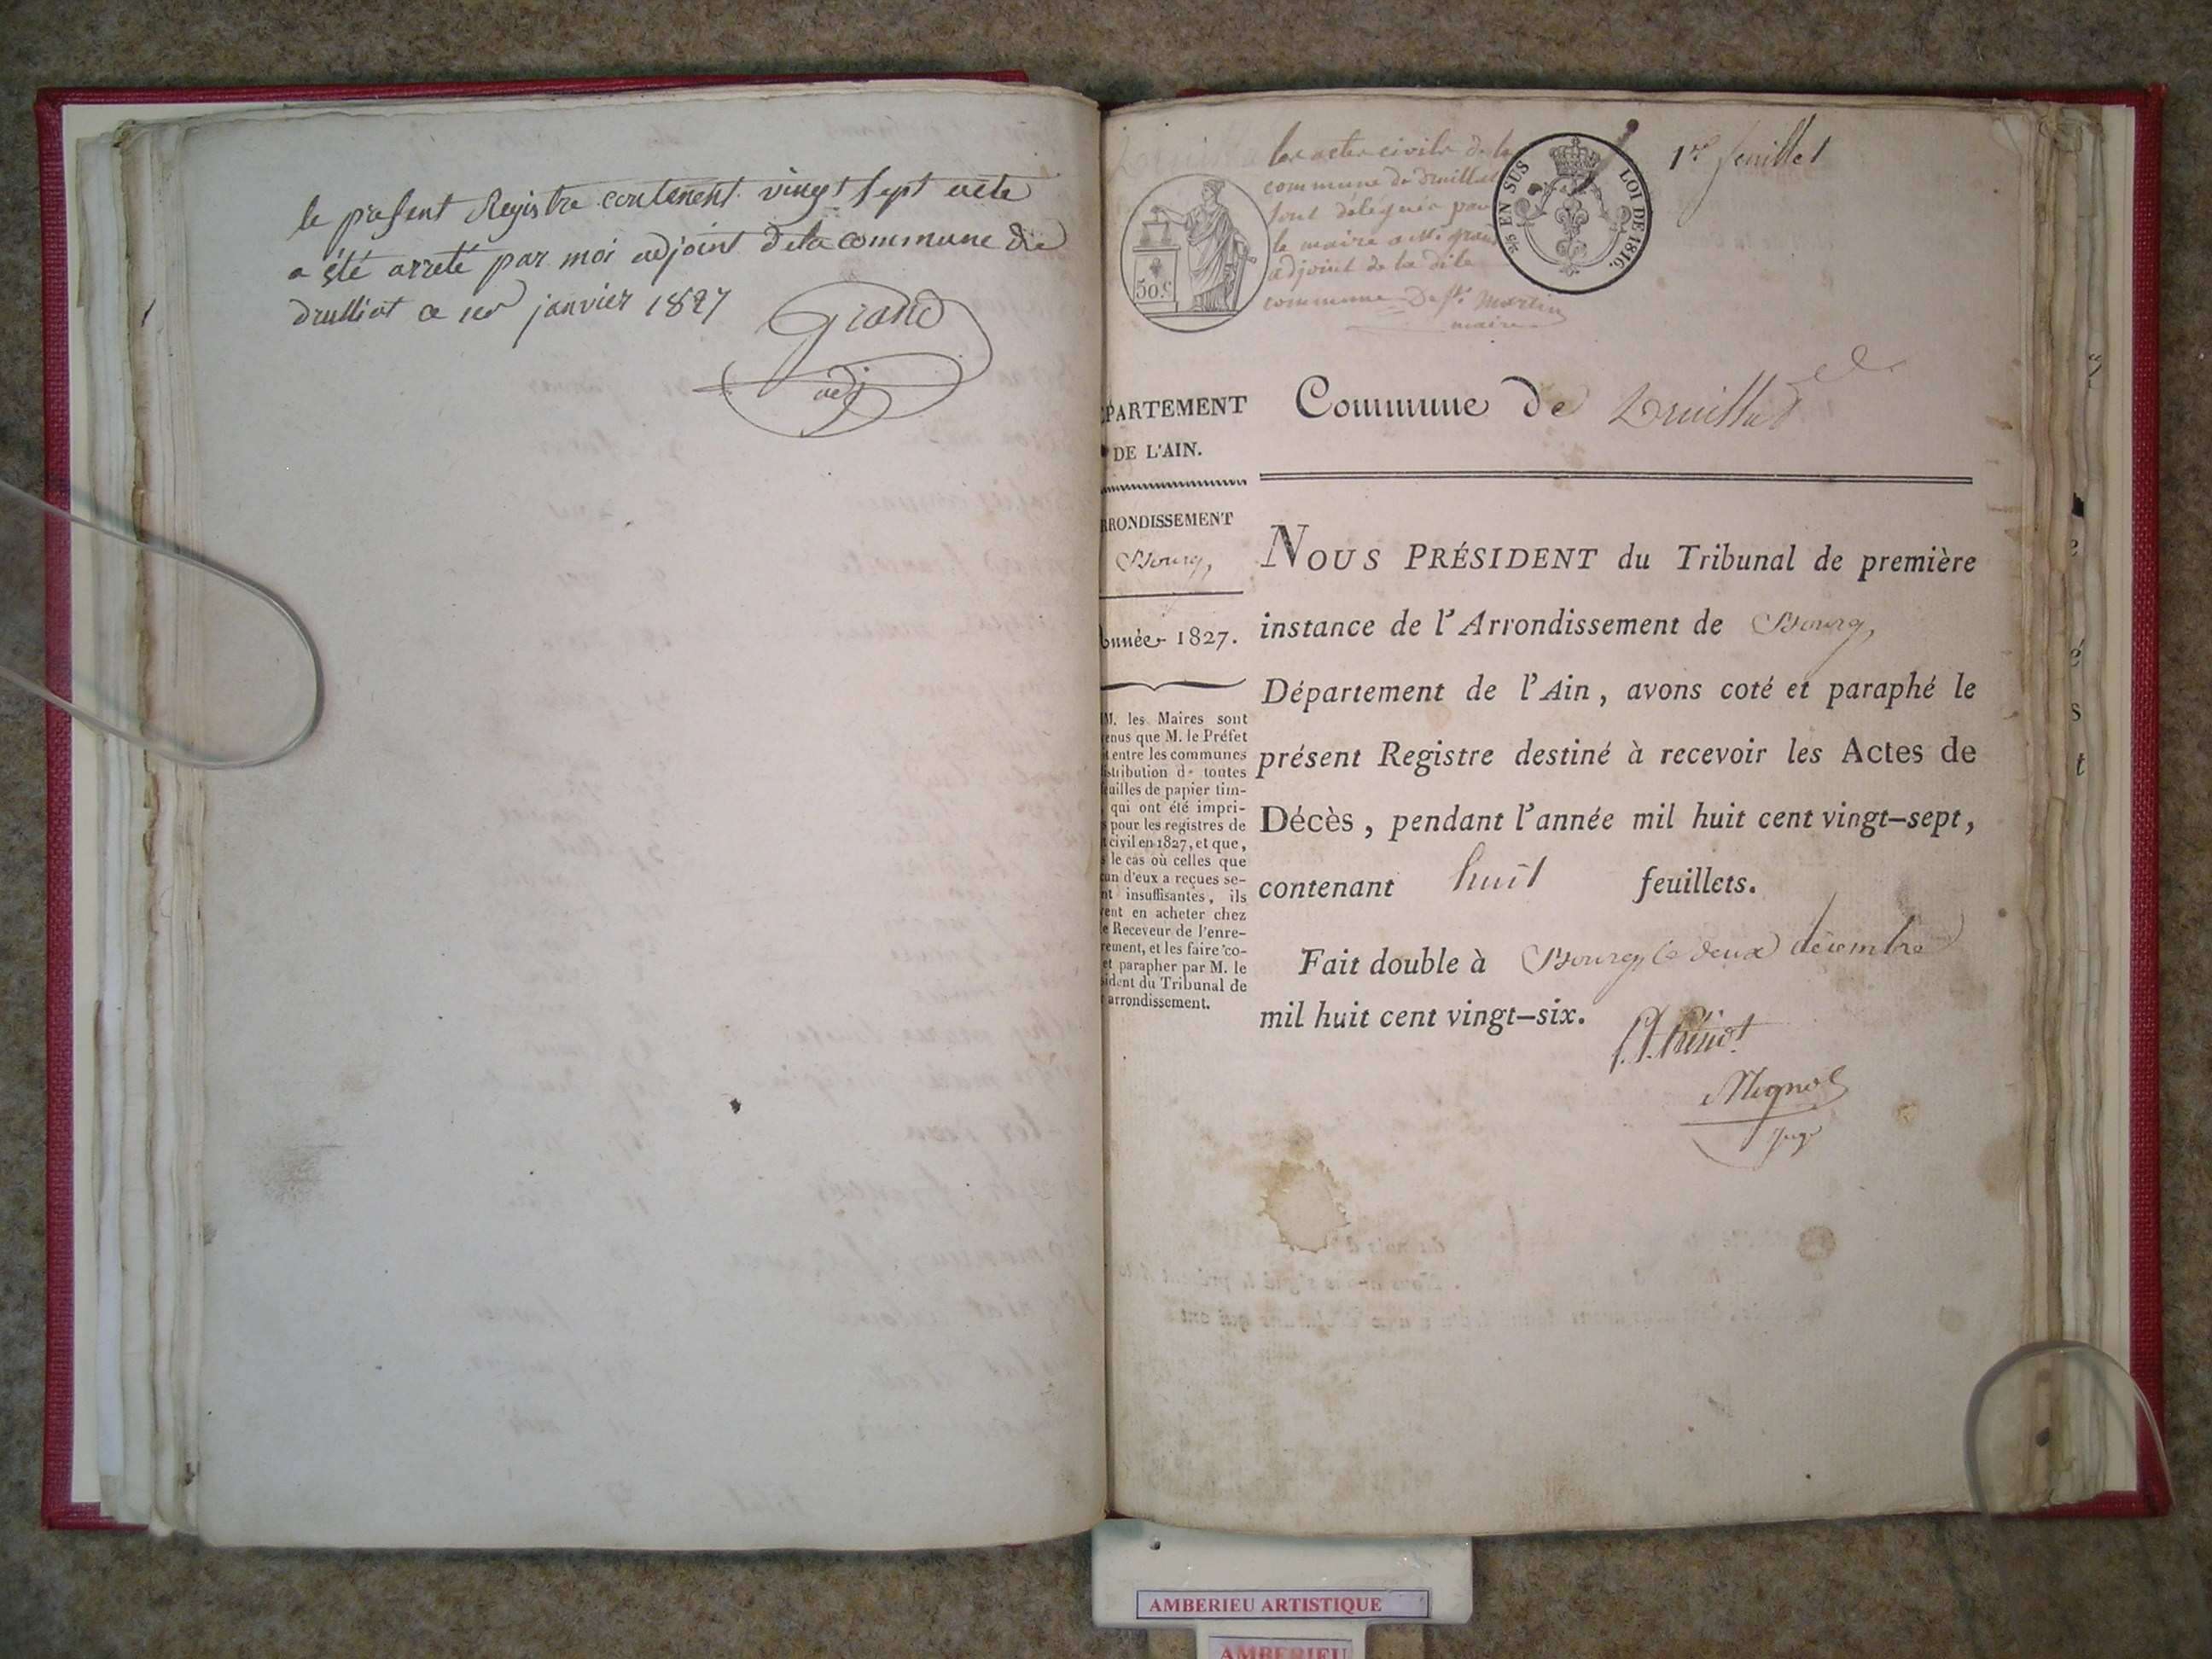 le present Registre contenent vingt sept acte
a été arreté par moi adjoint dela commune de
drulliat ce 1er janvier 1827
Grand
adj
les actes civils de la
commune de druillat
sont délégués par
le maire a Mr. grand
adjoint de la dite
commune De St. Martin
maire
50.c
5/6 EN SUS
LOI DE 1816.
1er feuillet
ÉPARTEMENT
DE L'AIN.
RRONDISSEMENT
Bourg,
Année 1827.
M. les Maires sont
enus que M. le Préfet
t entre les communes
istribution de toutes
euilles de papier tim-
qui ont été impri-
s pour les registres de
t civil en 1827, et que,
s le cas où celles que
cun d'eux a reçues se-
nt insuffisantes, ils
ent en acheter chez
e Receveur de l'enre-
rement, et les faire co-
et parapher par M. le
sident du Tribunal de
arrondissement.
Commune de Druillat
NOUS PRÉSIDENT du Tribunal de première
instance de l'Arrondissement de Bourg,
Département de l'Ain, avons coté et paraphé le
présent Registre destiné à recevoir les Actes de
Décès, pendant l'année mil huit cent vingt-sept,
contenant huit feuillets.
Fait double à Bourg le deux décembre
mil huit cent vingt-six.
Mignot
Juge
AMBERIEU ARTISTIQUE
AMBERIEU